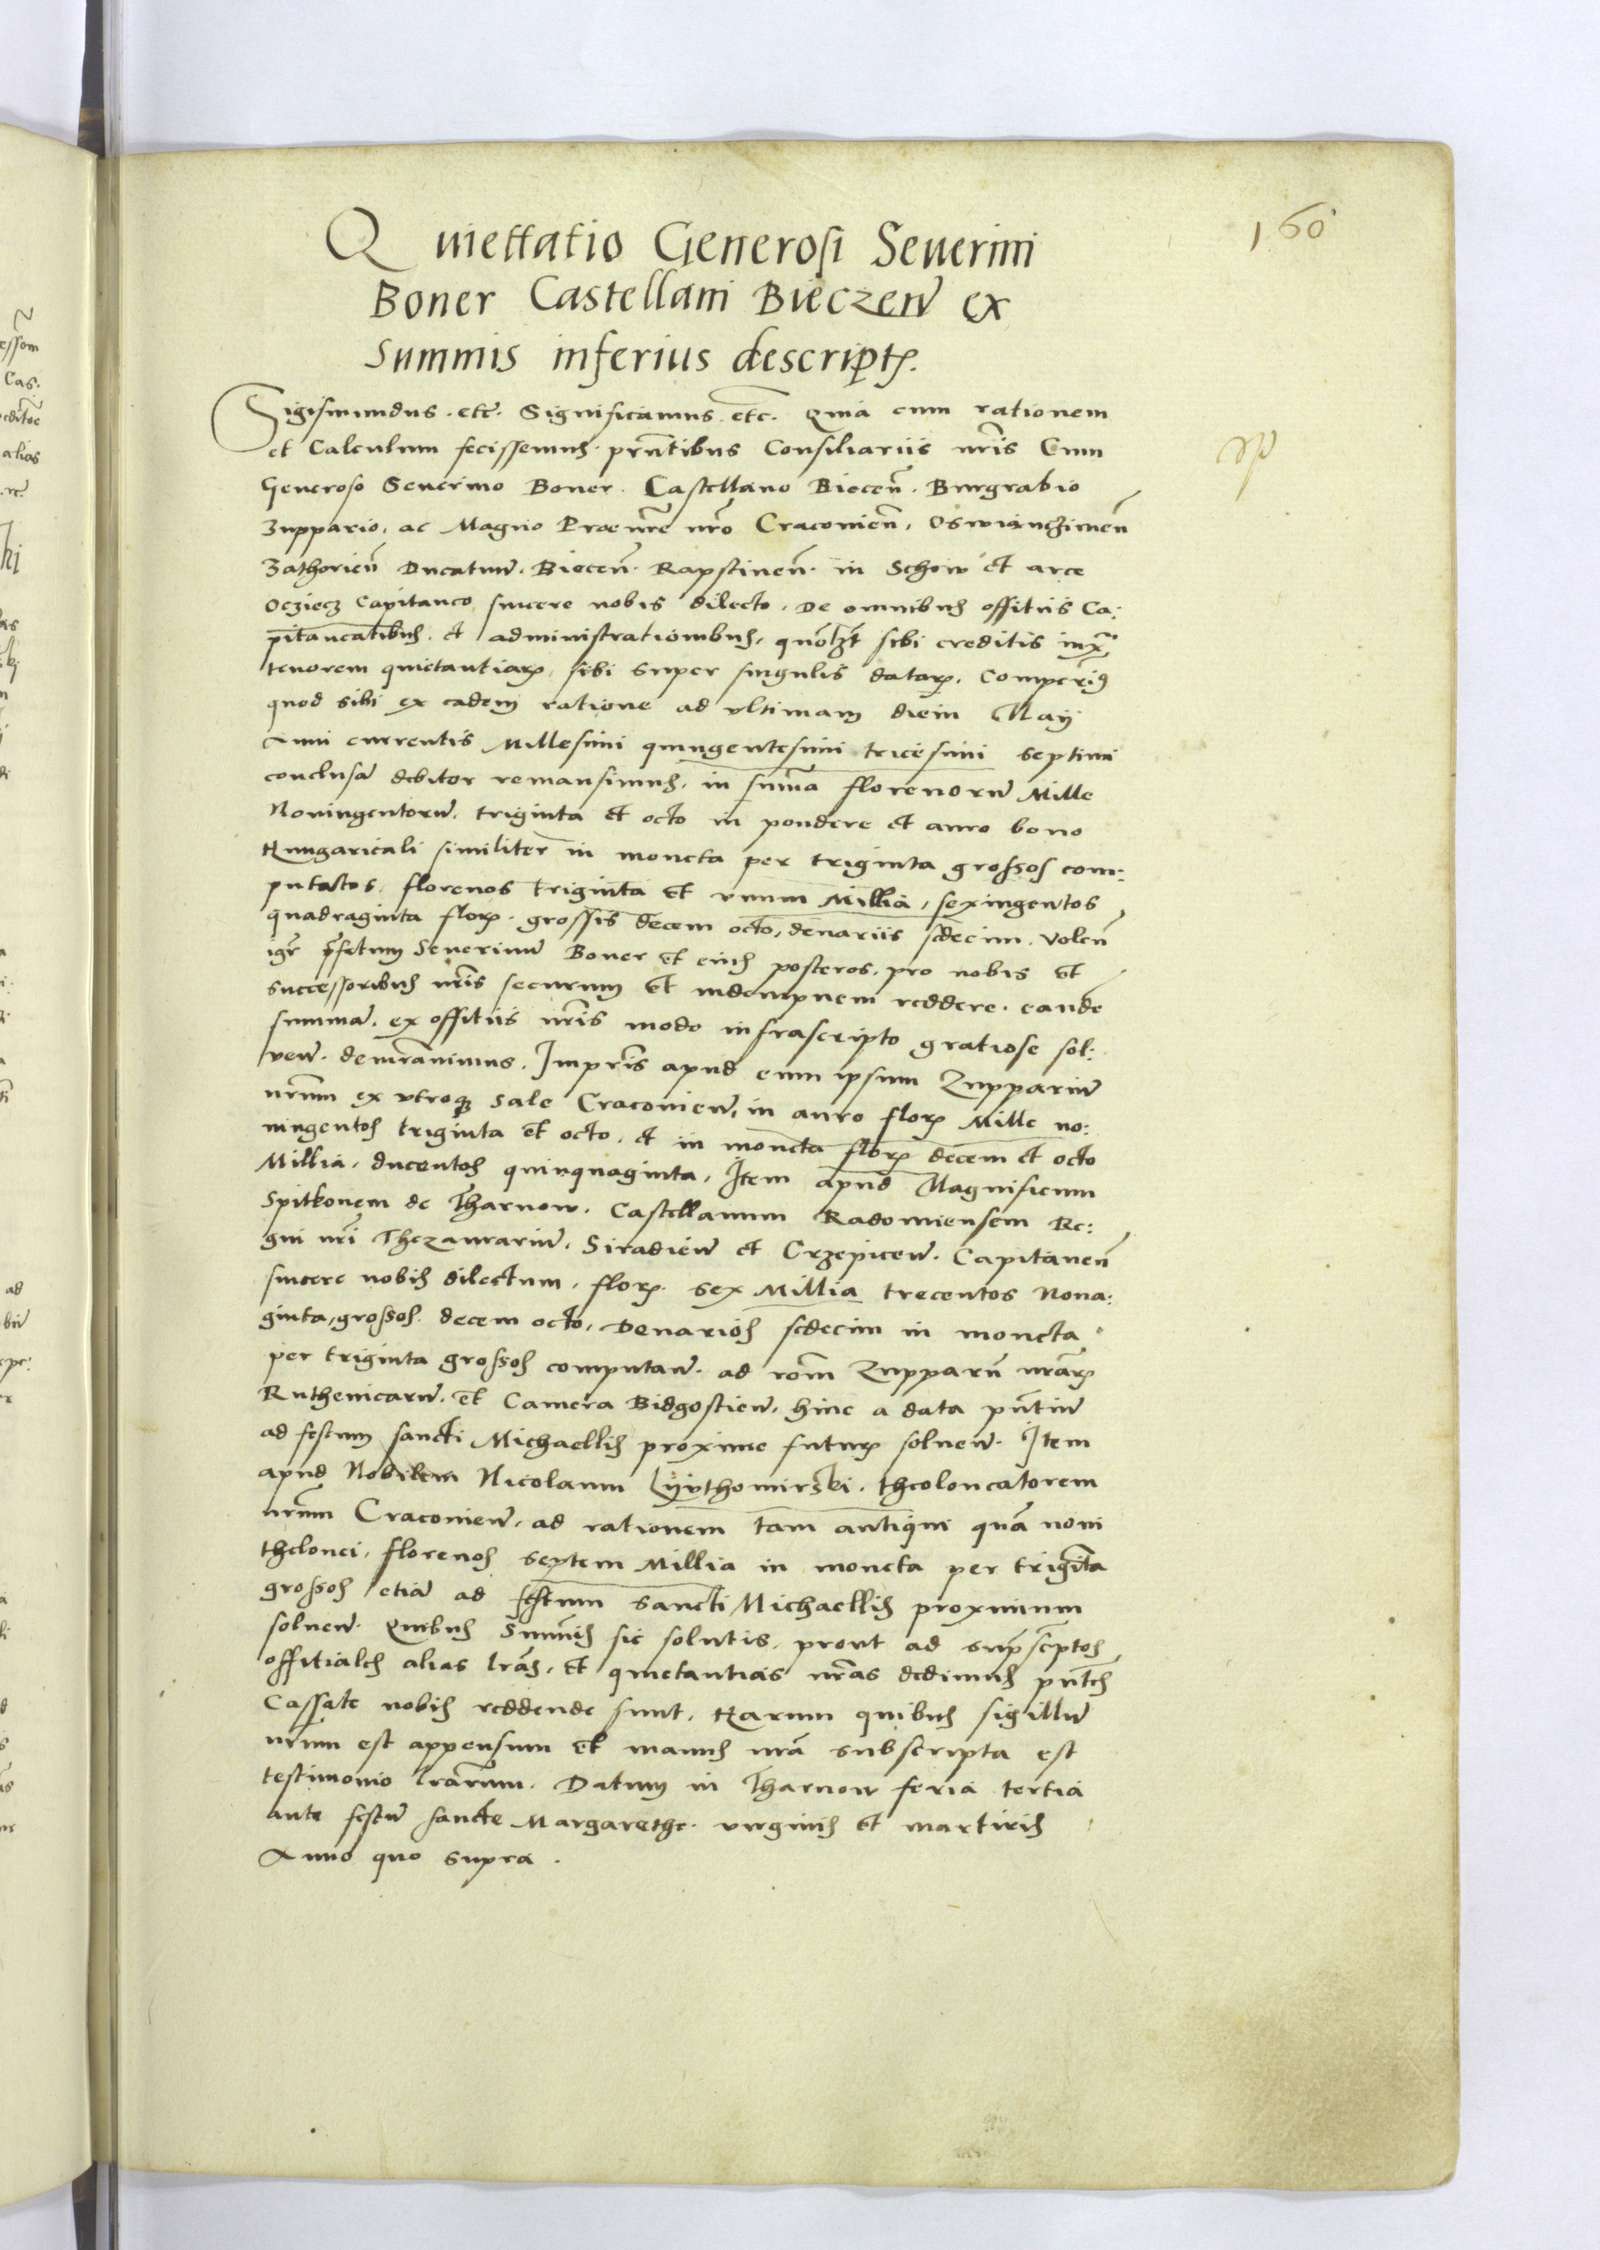 160
Quiettatio Generosi Seuerini
Boner Castellani Bieczen̄ ex
Summis inferius descriptꝭ.
Sigismundus. etc̄. Significamus. etc̄. Quia cum rationem
et Calculum fecissemus. pn̄tibus Consiliariis nr̄is Cum
Generoso Seuerino Boner. Castellano Biecen̄. Burgrabio
Zuppario, ac Magno Procur̄re nr̄o Cracouien̄, Oswianczimen̄
Zathorien̄ Ducatuū. Biecen̄. Rapstinen̄. in Schow et arce
Ocziecz Capitaneo, sincere nobis dilecto. De omnibus offitiis Ca:
pitaneatibus. et administrationibus, quōlꝫt sibi creditis iux̄.
tenorem quietantiarꝝ, sibi super singulis datarꝝ. Comperimꝰ
quod sibi ex eadem ratione ad vltimam diem Maij
Anni currentis Millesimi quingentesimi tricesimi septimi
conclusa debitor remansimus, in sum̄a florenorū Mille
Noningentorū. triginta et octo in pondere et auro bono
Hungaricali similiter in moneta per triginta grossos com:
putatos. florenos triginta et vnum Millia, sexingentos
quadraginta florꝭ. grossis decem octo, denariis sedecim. Volen̄
igr̄ p̄fatum Seuerinū Boner et eius posteros. pro nobis et
successoribus nr̄is securum et indempnem reddere. eandē
summā. ex offitiis nr̄is modo infrascripto gratiose sol:
uen̄. demr̄auimus. Impr̄is apud eum ipsum Zuppariū
nr̄um ex vtroqꝫ Sale Cracouien̄, in auro florꝭ Mille no:
ningentos triginta et octo. et in moneta florꝭ decem et octo
Millia, ducentos quinquaginta, Item apud Magnificum
Spitkonem de Tharnow. Castellanum Radomiensem Re:
gni nr̄i Thezaurariū. Siradien̄ et Crzepicen̄. Capitaneū
sincere nobis dilectum. florꝭ. sex Millia trecentos Nona:
ginta, grossos decem octo, Denarios sedecim in moneta
per triginta grossos computan̄. ad rōm Zupparū nr̄arꝝ
Ruthenicarū. et Camera Bidgostien̄. hinc a data pn̄tiū
ad festum sancti Michaellis proxime futurꝭ soluen̄. Item
apud Nobilem Nicolaum Lyythomirski. theloneatorem
nr̄um Cracouien̄, ad rationem tam antiqui quā noui
thelonei, florenos septem Millia in moneta per triginta
grossos etiā ad festum sancti Michaellis proximum
soluen̄. Quibus Summis sic solutis. prout ad supꝛasc̄ptos
offitiales alias lr̄as, et quietantias nr̄as dedimus pn̄tes
Cassate nobis reddende sunt. Harum quibus sigillū
nr̄um est appensum et manus nr̄a subscripta est
testimonio lr̄arum. Datum in Tharnow feria tertia
ante festū sancte Margarethe. virginis et martiris
Anno quo supra.